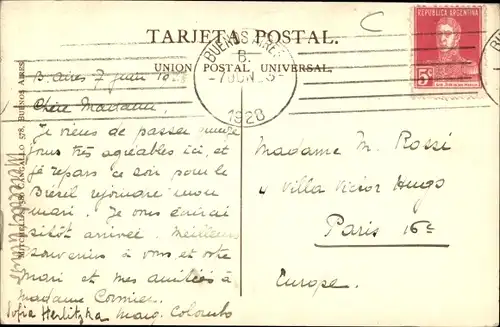 TARJETA POSTAL.
UNION POSTAL UNIVERSAL.
BUENOS AIRES
B.
1928
REPUBLICA ARGENTINA
5 C
B. Aires 7 juin
Chère Madame,
Je viens de passer
jours très agréables ici, et
je repars ce soir pour le
Brésil rejoindre mon
mari. Je vous écrirai
sitôt arrivée. Meilleurs
souvenirs à vous et votre
mari et mes amitiés à
Madame Cormier.
Sofia Herlitzka Marg. Colombo
Madame M. Rossé
4 Villa Victor Hugo
Paris 16e
Europe.
CANGALLO 578, BUENOS AIRES